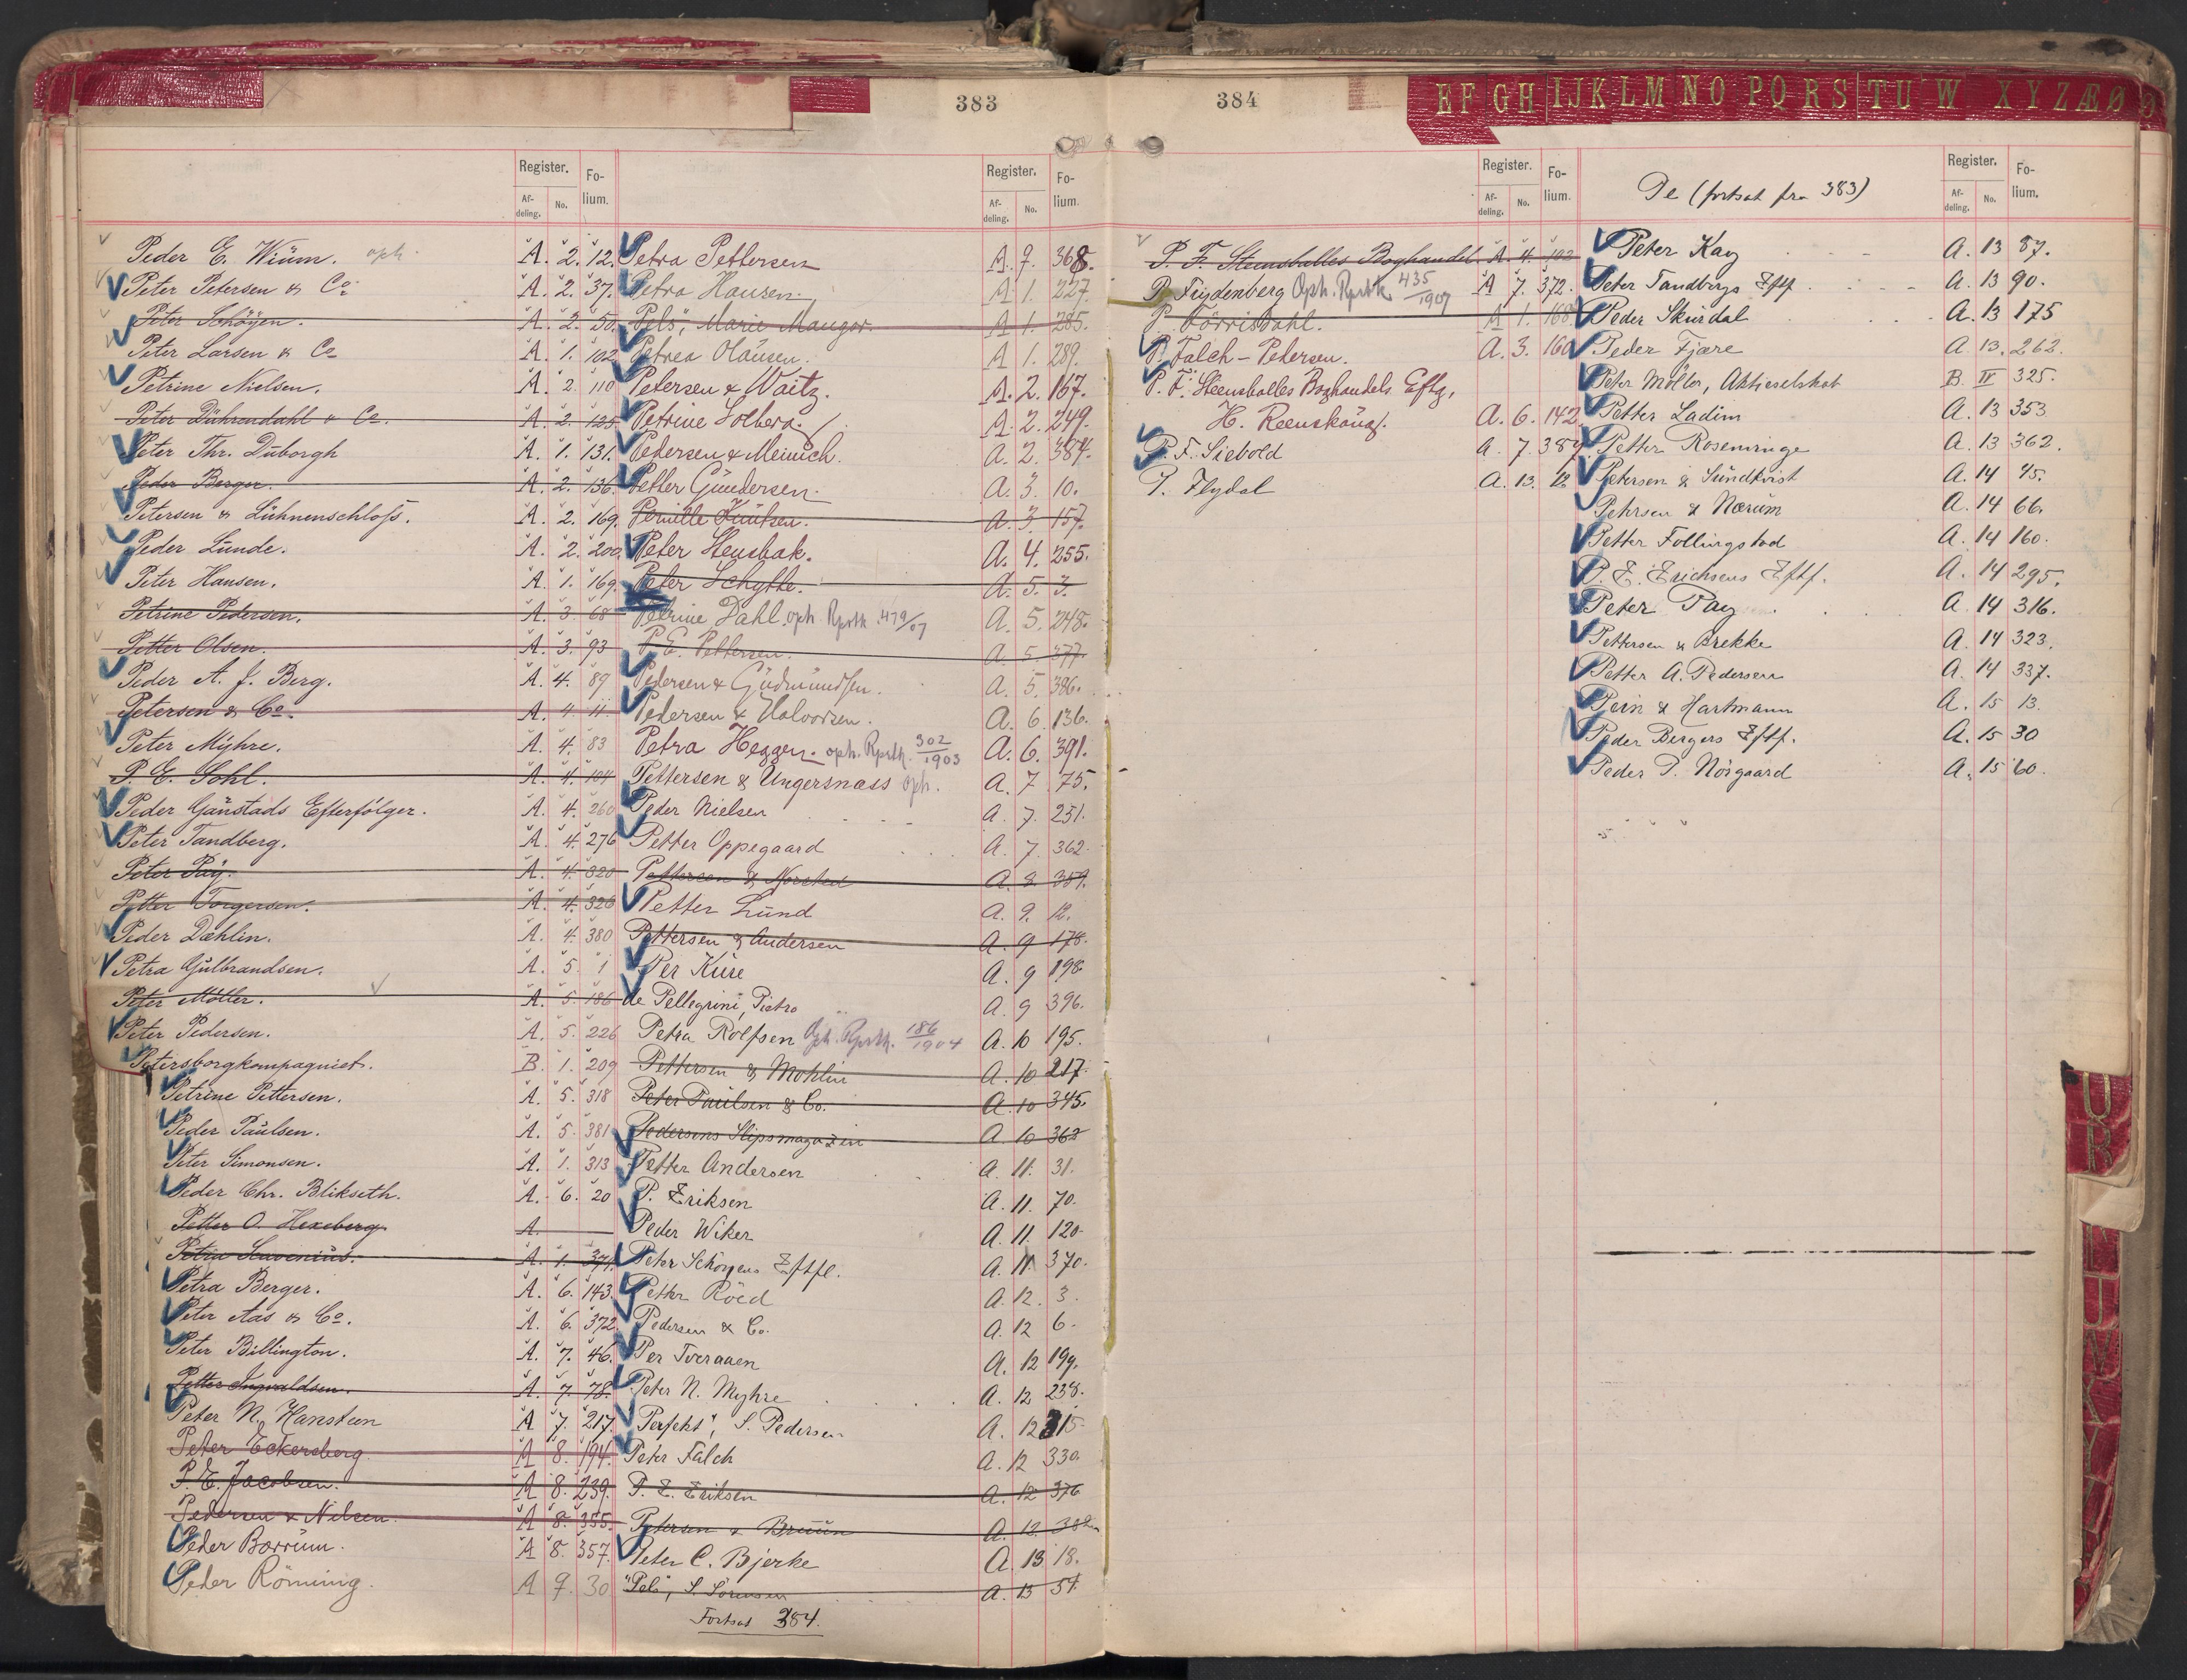 383
Register. Fo-
Af- No. lium.
deling.
Peder E. Wiüm. oph. A. 2. 12.
Peter Petersen & Co. A. 2. 37.
Peter Schöyen. A. 2. 50.
Peter Larsen & Co A. 1. 102
Petrine Nielsen. A. 2. 110
Peter Dührendahl & Co. A. 2. 125.
Peter Thr. Duborgh A. 1. 131.
Peder Berger. A. 2. 136.
Petersen & Lühnenschloss. A. 2. 169.
Peder Lunde. A. 2. 200.
Peter Hansen. A. 1. 169.
Petrine Pedersen. A. 3. 68
Petter Olsen. A. 3. 93
Peder A. J. Berg. A. 4. 89
Petersen & Co. A. 4. 11.
Peter Myhre. A. 4. 83
P. E. Sohl. A. 4. 104
Peder Gaustads Efterfölger. A. 4. 260
Peter Tandberg. A. 4. 276
Peter Pay. A. 4. 320
Petter Torgersen. A. 4. 326
Peder Dæhlin. A. 4. 380
Petra Gulbrandsen. A. 5. 1
Peter Möller. A. 5. 186
Peter Pedersen. A. 5. 226
Petersborgkompagniet. B. 1. 209
Petrine Pettersen. A. 5. 318
Peder Paulsen. A. 5. 381
Peter Simonsen. A. 1. 313
Peder Chr. Blikseth. A. 6. 20
Petter O. Hexeberg. A.
Petra A. 1. 371.
Petra Berger. A. 6. 143.
Peter Aas & Co. A. 6. 372.
Peter Billington. A. 7. 46.
Petter Ingvaldsen. A. 7. 78.
Peter N. Hansteen A 7. 217.
Peter Eckersberg. A 8. 194.
P. E. Jacobsen. A 8. 239.
Pedersen & Nilsen. A 8. 355.
Peder Borrum. A 8. 357.
Peder Röming. A 9. 30
Register. Fo-
Af- No. lium.
deling.
Petra Pettersen A. 7. 368.
Petra Hansen. A 1. 227.
"Pels", Marie Mauger. A 1. 285.
Petrea Olausen. A 1. 289.
Petersen & Waitz. A. 2. 167.
Petrine Solberg. A. 2. 249.
Pedersen & Meinich. A. 2. 384.
Petter Gundersen. A. 3. 10.
Pernille Knutsen. A. 3. 157.
Peter Stensbak. A. 4. 255.
Peter Schytte. A. 5. 3.
Petrine Dahl. oph. Rprtk. 479/07 A. 5. 248.
P. E. Pettersen. A. 5. 377.
Pedersen & Gudmundsen. A. 5. 386.
Pedersen & Halvorsen. A. 6. 136.
Petra Heggen. oph. Rprtk. 302/1903 A. 6. 391.
Pettersen & Ungersnæss oph. A. 7 75.
Peder Nielsen A. 7. 251.
Petter Oppegaard A. 7. 362.
Pettersen & Norsted A. 8. 359.
Petter Lund A. 9. 12.
Pettersen & Andersen A. 9 178.
Per Kure A. 9 198.
de Pellegrini, Pietro A. 9 396.
Petra Rolfsen Oph. Rprtk. 186/1904 A. 10 195.
Pettersen & Mohlin A. 10 217.
Peter Paulsen & Co. A. 10 345.
Pedersens Slipsmagazin A. 10 362
Petter Andersen A. 11. 31.
P. Eriksen A. 11. 70.
Peder Wiker A. 11. 120.
Peter Schöyens Eftfl. A. 11 370.
Petter Röed A. 12. 3.
Pedersen & Co. A. 12 6.
Per Tveraaen A. 12 199.
Peter N. Myhre A. 12 238.
"Perfekt", S. Pedersen A. 12 315.
Peter Falch A. 12 330.
P. E. Eriksen A. 12 376
Petersen & Bruun A. 12. 382
Peter C. Bjerke A. 13 18.
"Pels", S. Sörensen A. 13 51.
Fortsat 384.
384
EFGHIJKLMNOPQRSTUWXYZÆØ
Register. Fo-
Af- No. lium.
deling.
P. F. Steensballes Boghandel. A. 4. 102
P. Frydenberg Oph. Rprtk. 435/1907 A 7. 372.
P. Forrisdahl. A 1. 168.
P. Falch-Petersen. A. 3. 160
P. F. Steensballes Boghandels Eftg,
H. Reenskoug. A. 6. 142
P. F. Siebold A. 7. 387
P. Flydal A. 13. 12
Pe (fortsat fra 383)
Register. Fo-
Af- No. lium.
deling.
Peter Kay A. 13 87.
Peter Tandbergs Eftf. A. 13 90.
Peder Skurdal A. 13 175
Peder Fjære A. 13. 262.
Peter Möller, Aktieselskab B. IV 325.
Petter Ladim A. 13 353
Petter Rosenringe A. 13 362.
Petersen & Sundkvist A. 14 45.
Pehrsen & Nærum A. 14 66.
Petter Follingstad A. 14 160.
P. E. Erichsens Eftf. A. 14 295.
Peter Pay A. 14 316.
Pettersen & Brekke A. 14 323.
Petter A. Pedersen A. 14 337.
Pein & Hartmann A. 15 13.
Peder Bergers Eftf. A. 15 30
Peder P. Nörgaard A. 15 60.